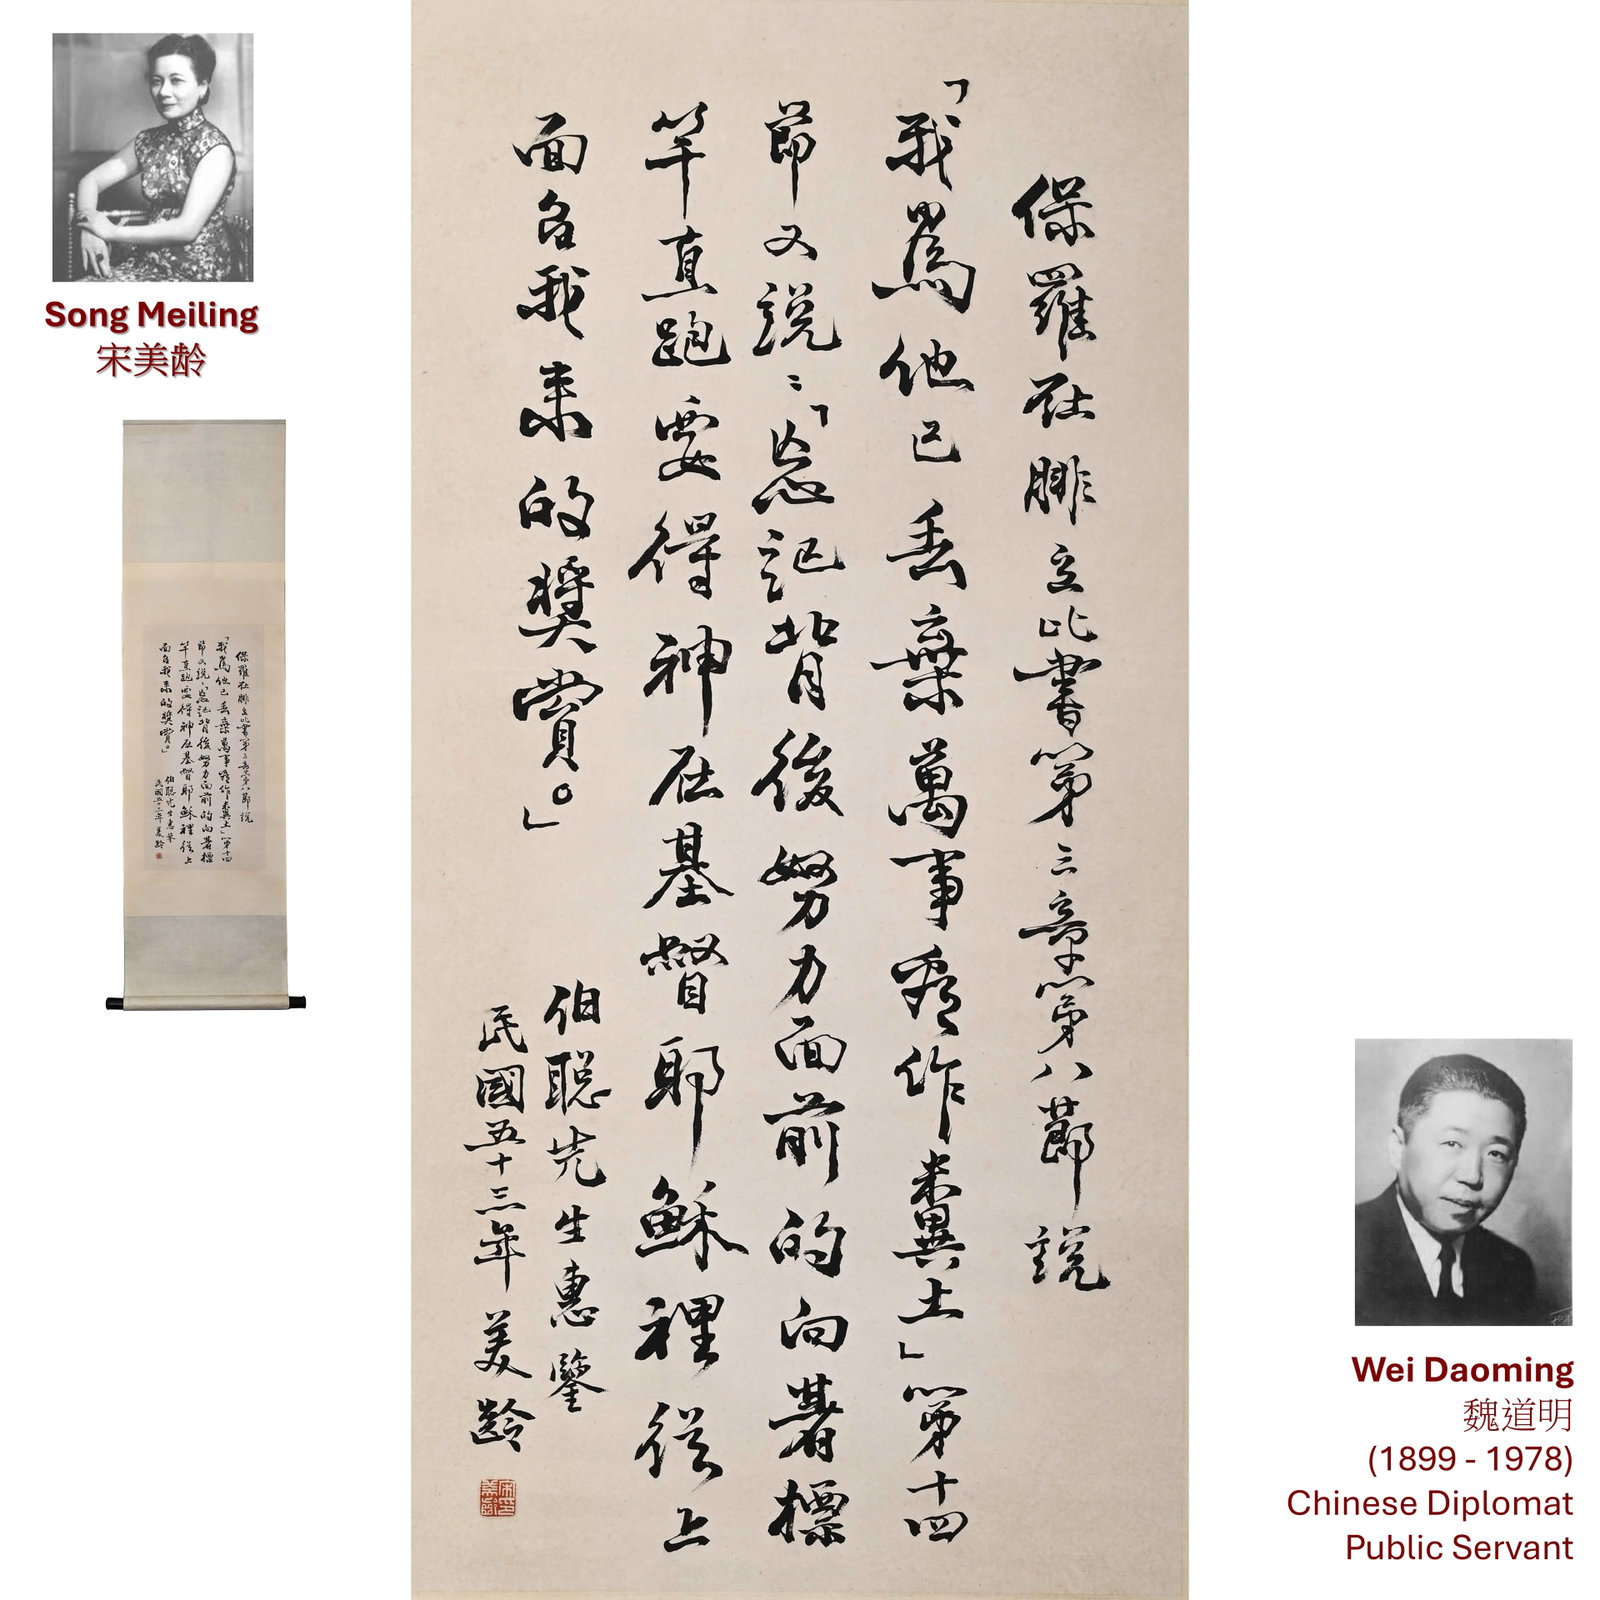 Song Meiling
宋美龄
保羅在腓立比書第三章第八節說
「我爲他已丟棄萬事看作糞土」第十四
節又說:「忘記背後努力面前的向著標
竿直跑要得神在基督耶穌裡從上
面召我來的獎賞。」
伯聰先生惠鑒
民國五十三年 美齡
Wei Daoming
魏道明
(1899 - 1978)
Chinese Diplomat
Public Servant